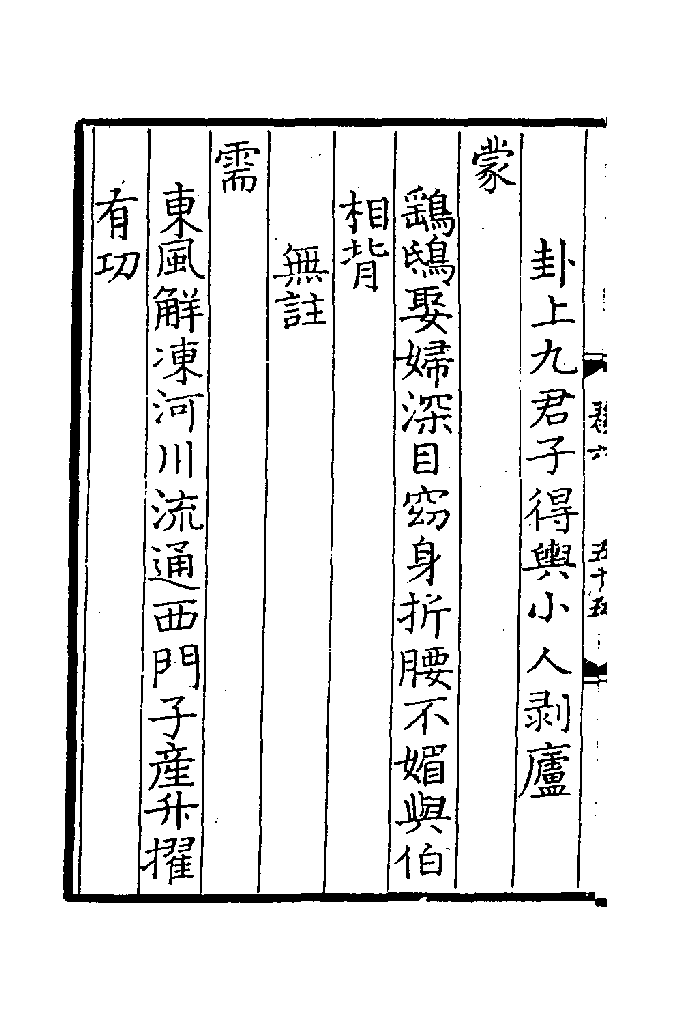 卦上九君子得輿小人剥廬
蒙
鷂鴟娶婦深目窈身折腰不媚與伯
相背
無註
需
東風解凍河川流通西門子產升擢
有功
五十五